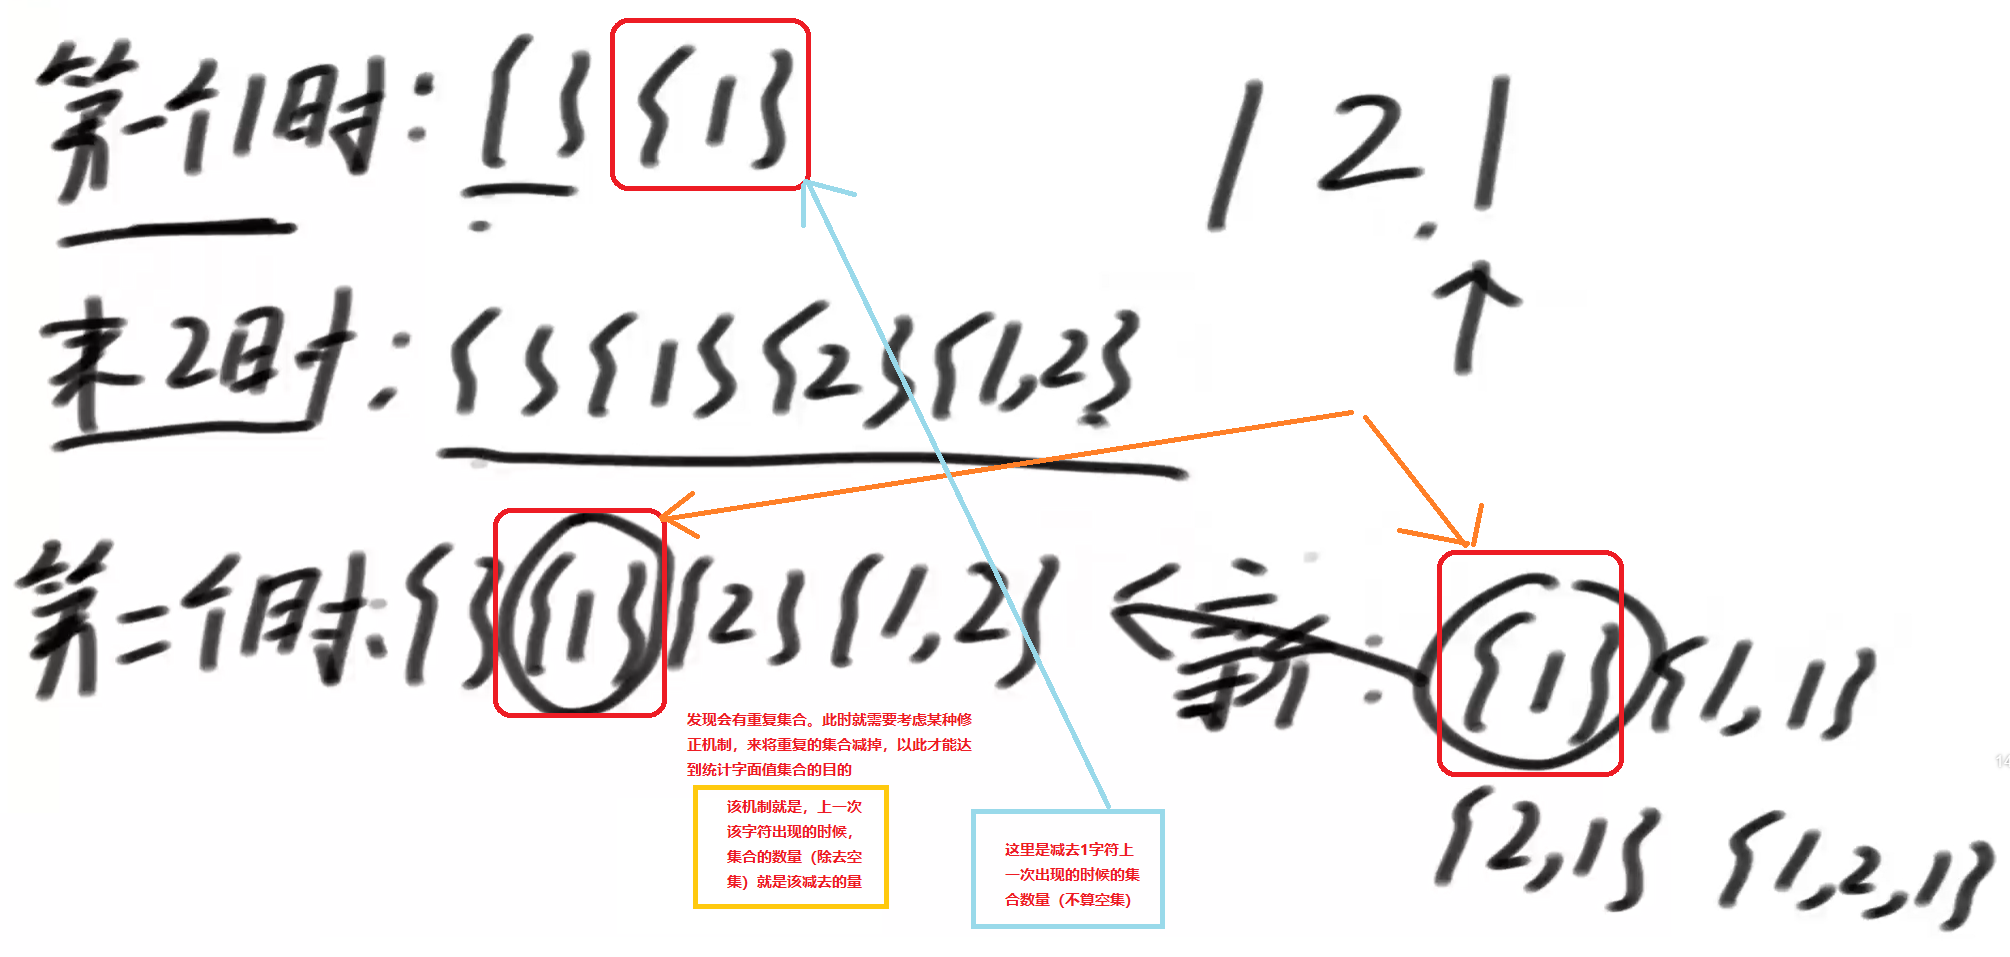 第一个1时: { } {1}
1 2 1
来2时: { } {1} {2} {1,2}
第二个1时: { } {1} {2} {1,2} ← 新: {1} {1,1}
{2,1} {1,2,1}
发现会有重复集合。此时就需要考虑某种修
正机制，来将重复的集合减掉，以此才能达
到统计字面值集合的目的
该机制就是，上一次
该字符出现的时候，
集合的数量（除去空
集）就是该减去的量
这里是减去1字符上
一次出现的时候的集
合数量（不算空集）
14